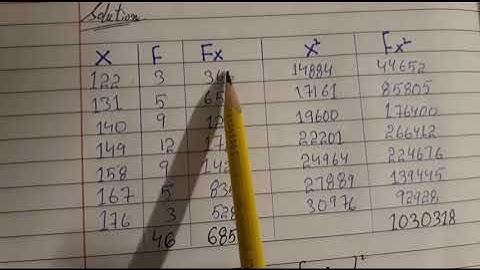 Solution
X F Fx x² Fx²
122 3 14884 44652
131 5 17161 85805
140 9 19600 176400
149 12 22201 266412
158 9 24964 224676
167 5 27889 139445
176 3 528 30976 92928
46 1030318